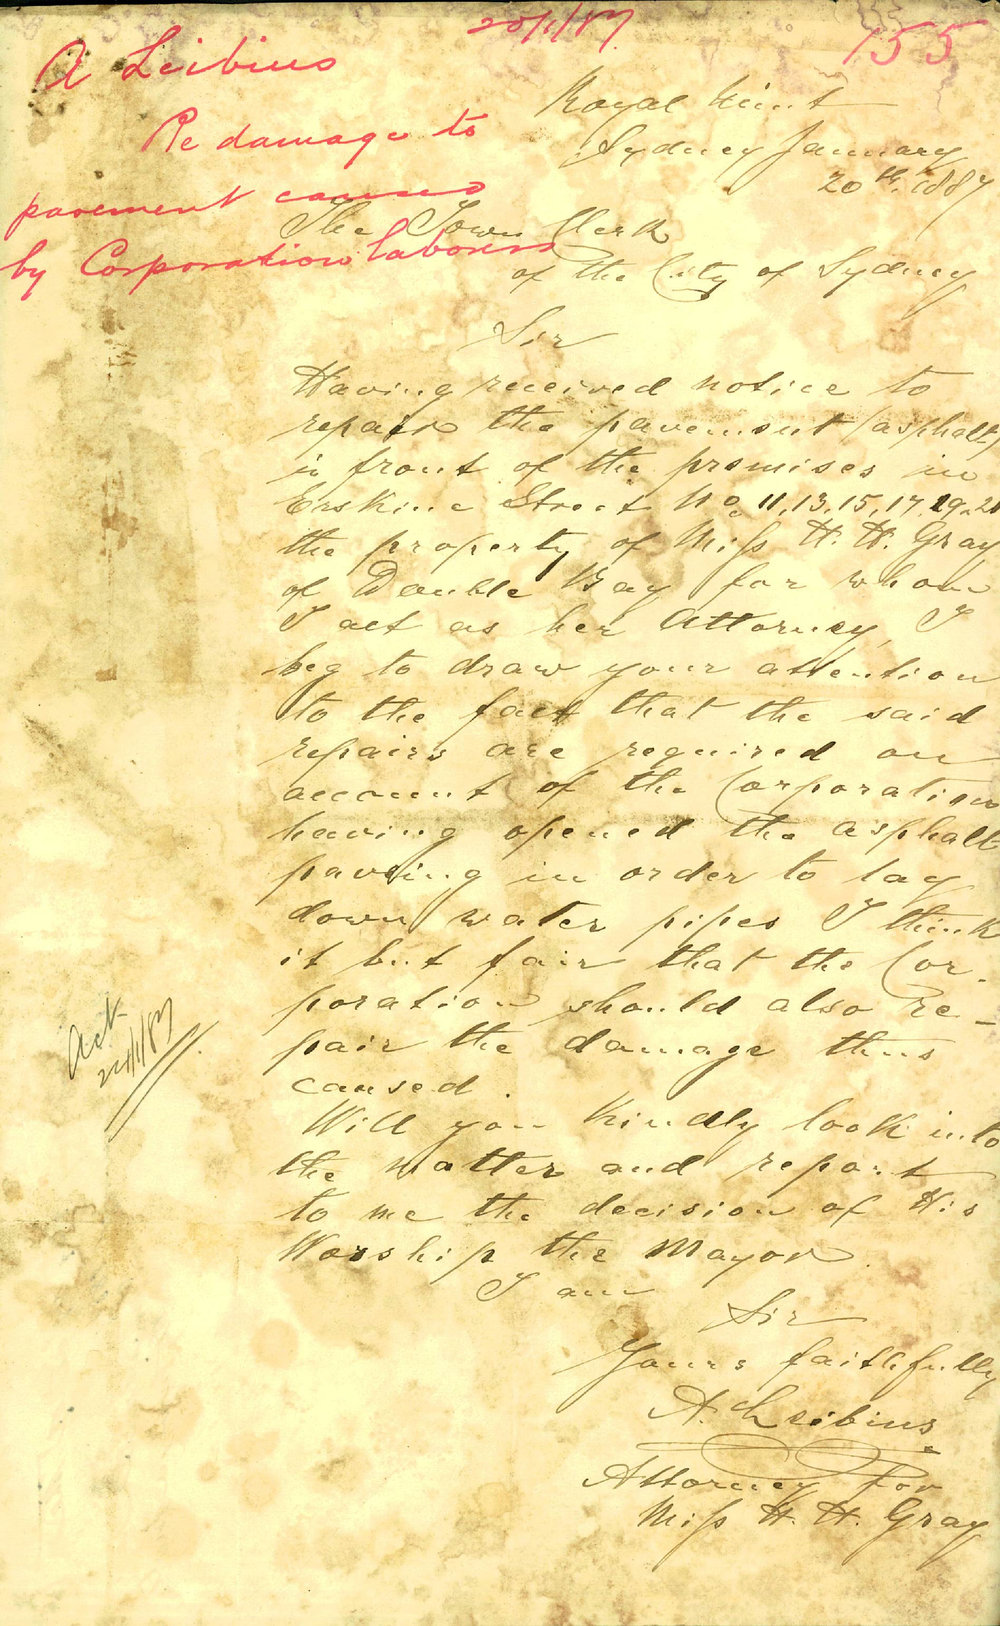 20/1/87
155
A Leibius
Re damage to
pavement caused
by Corporation laborers
Royal Mint
Sydney January
20th 1887
The Town Clerk
of the City of Sydney
Sir
Having received notice to
repair the pavement (asphalt)
in front of the premises in
Erskine Street No. 11, 13, 15, 17, 19, 21
the property of Miss H. H. Gray
of Double Bay for whom
I act as her Attorney, I
beg to draw your attention
to the fact that the said
repairs are required on
account of the Corporation
having opened the asphalt
paving in order to lay
down water pipes I think
it but fair that the Cor-
poration should also re-
pair the damage thus
caused.
Will you kindly look into
the matter and report
to me the decision of His
Worship the Mayor.
I am
Sir
Yours faithfully
A. Leibius
Attorney for
Miss H. H. Gray
Ack